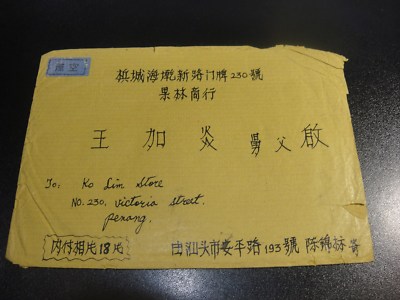 航空
槟城海墘新路门牌230號
果林商行
王加炎 父啟
To: Ko Lim Store
NO. 230, victoria street,
penang.
内付相片18片
由汕头市安平路193號 陈锦 寄